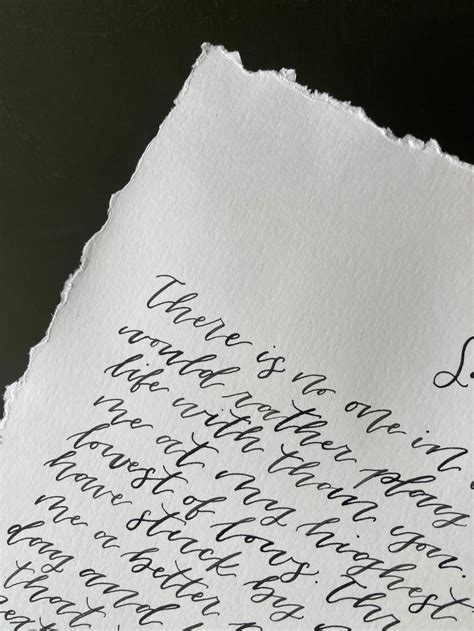 L
There is no one in
would rather play
life with than you.
me at my highest
lowest of lows.
have stuck by
me a better
day and
that